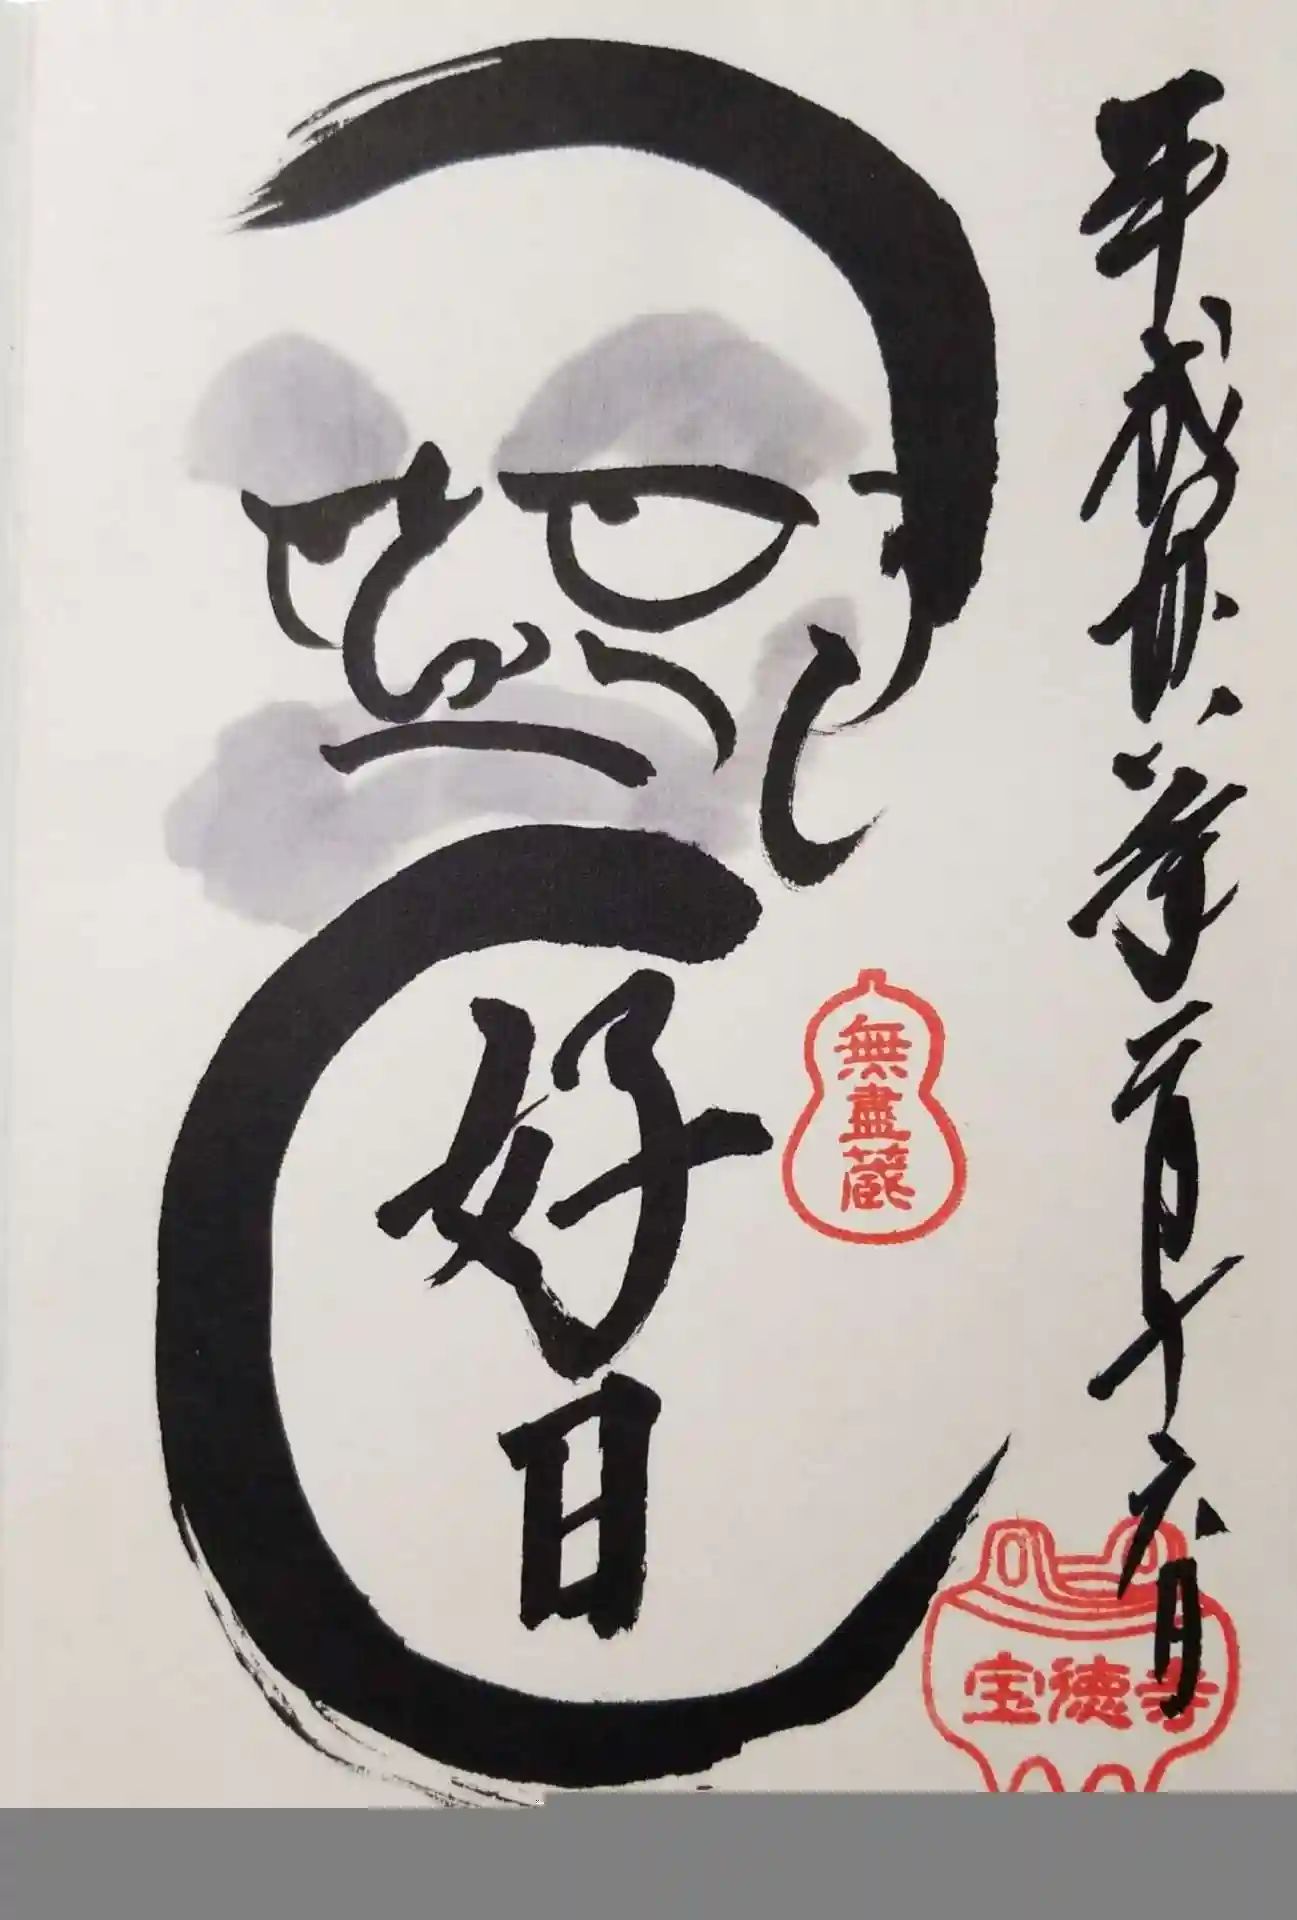 平成 年二月十六日
好日
無盡蔵
宝徳寺